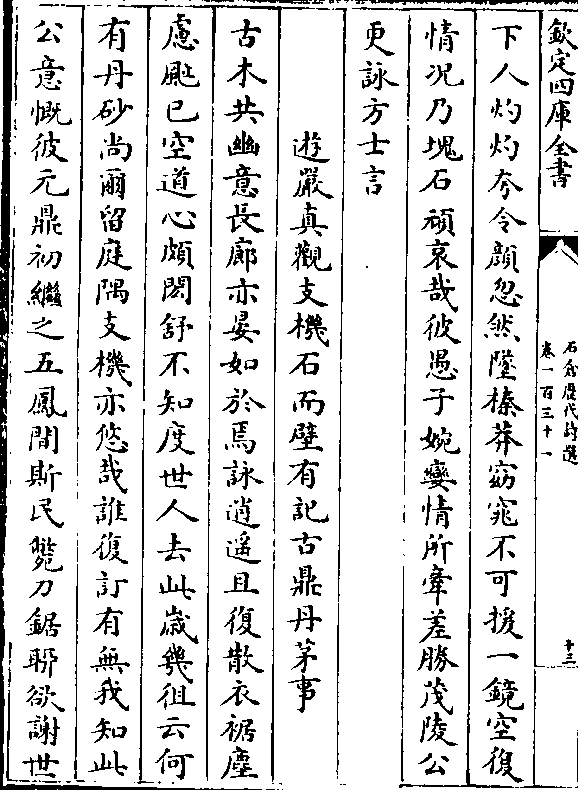 欽定四庫全書
石倉歷代詩選
卷一百三十一
十三
下人灼灼夸令顔忽然墜榛莽窈窕不可援一鏡空復
情况乃塊石頑哀哉彼愚子婉孌情所牽差勝茂陵公
更詠方士言
遊嚴真觀支機石而壁有記古鼎丹茅事
古木共幽意長廊亦晏如於焉詠逍遥且復散衣裾塵
慮颩已空道心頗閎舒不知度世人去此歳幾徂云何
有丹砂尚爾留庭隅支機亦悠哉誰復訂有無我知此
公意慨彼元鼎初繼之五鳳間斯民斃刀鋸聊欲謝世